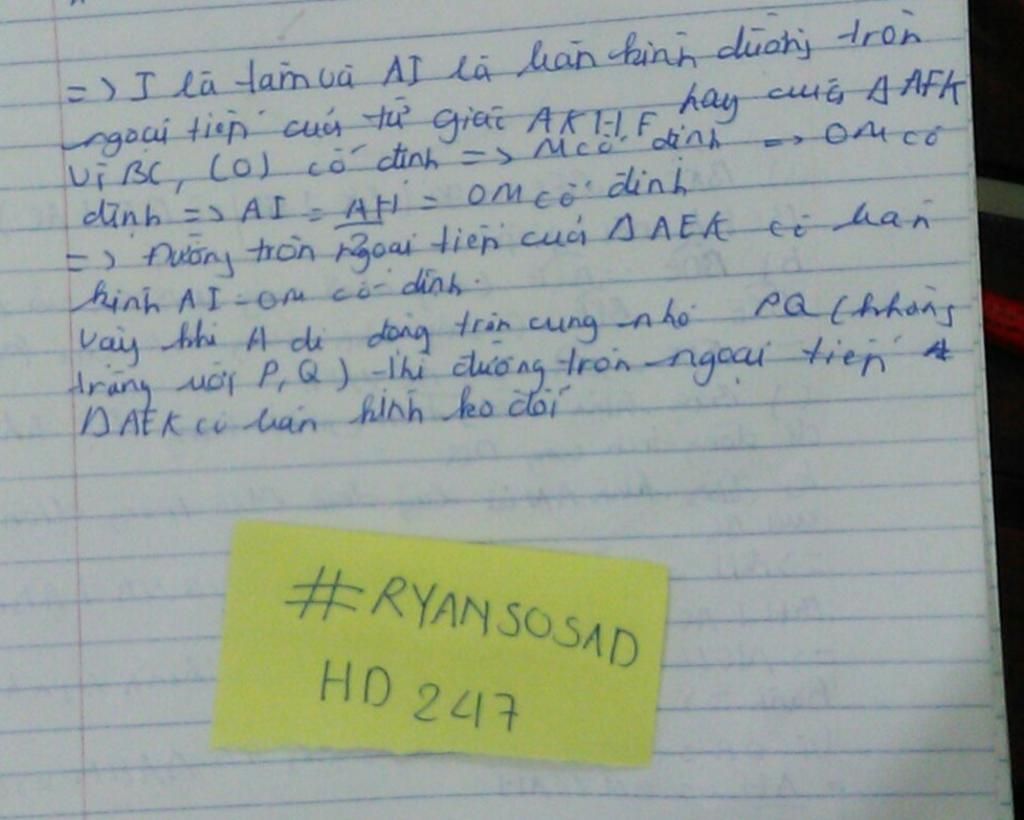 => I là tâm và AI là bán kính đường tròn
ngoại tiếp của tứ giác AKHF hay của Δ AFK
Vì BC, (O) cố định => M cố định => OM cố
định => AI = AH/2 = OM cố định
=> Đường tròn ngoại tiếp của Δ AEK có bán
kính AI = OM cố định.
Vậy khi A di động trên cung nhỏ PQ (không
trùng với P, Q) thì đường tròn ngoại tiếp
Δ AEK có bán kính ko đổi
#RYANSOSAD
HD 247